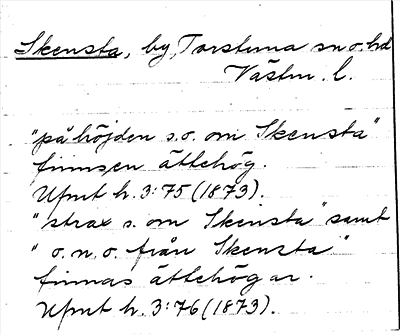 Skensta, by, Torstuna sn o. hd
Västm. l.
"på höjden s.o. om Skensta"
finnes en ättehög.
Upmt h. 3:75 (1873).
"strax s. om Skensta" samt
" o. n. o. från Skensta"
finnas ättehögar.
Upmt h. 3:76 (1873).